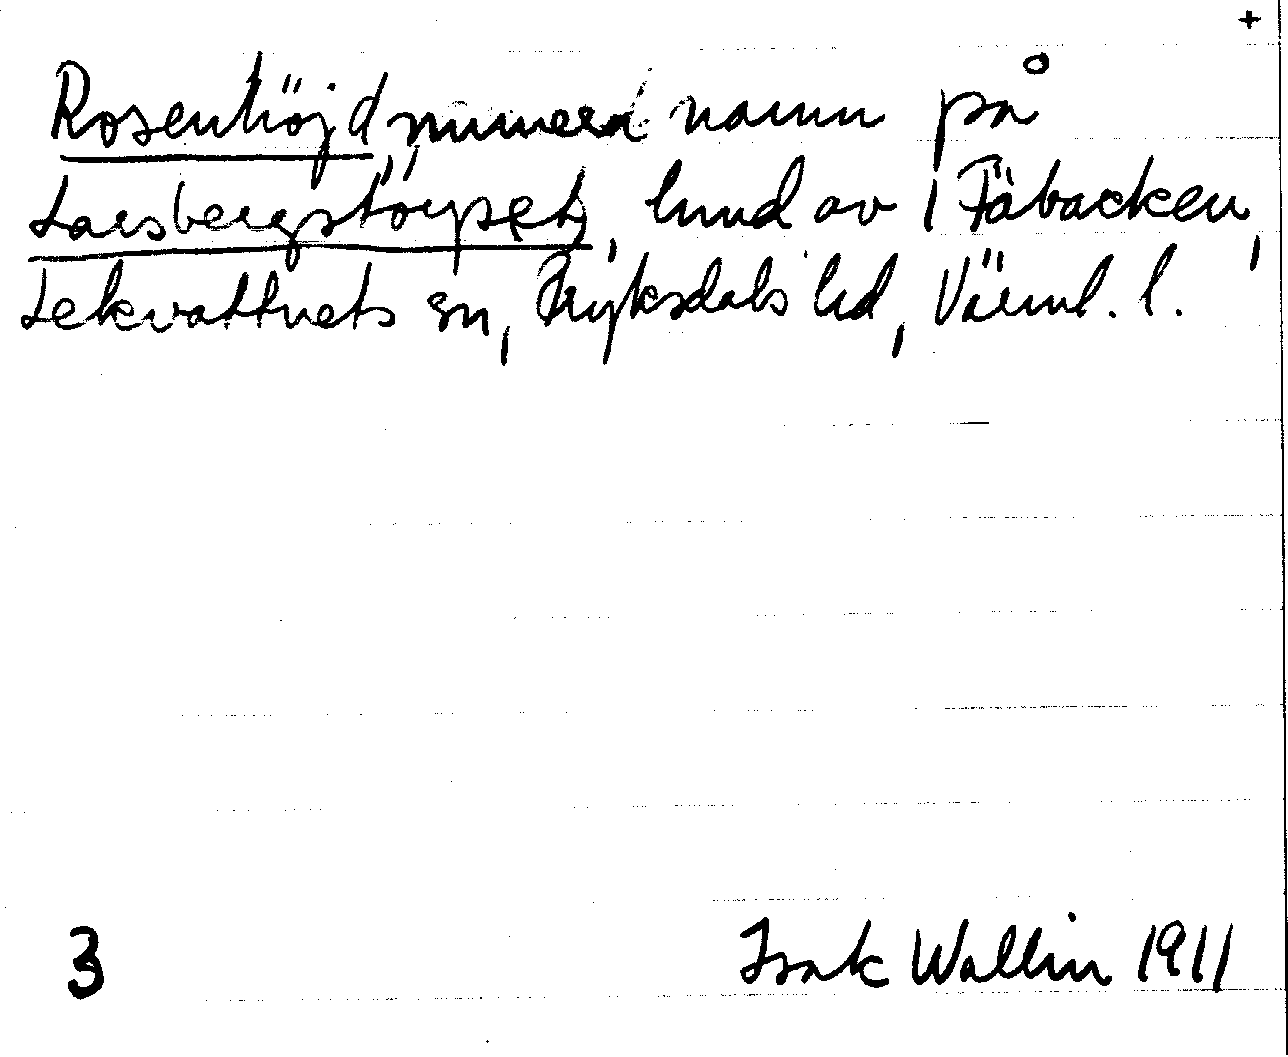 +
Rosenhöjd, numera namn på
Larsbergstörpet, lund av 1 Fäbacken,
Lekvattnets sn, Fryksdals hd, Värml. l.
3 Isak Wallin 1911